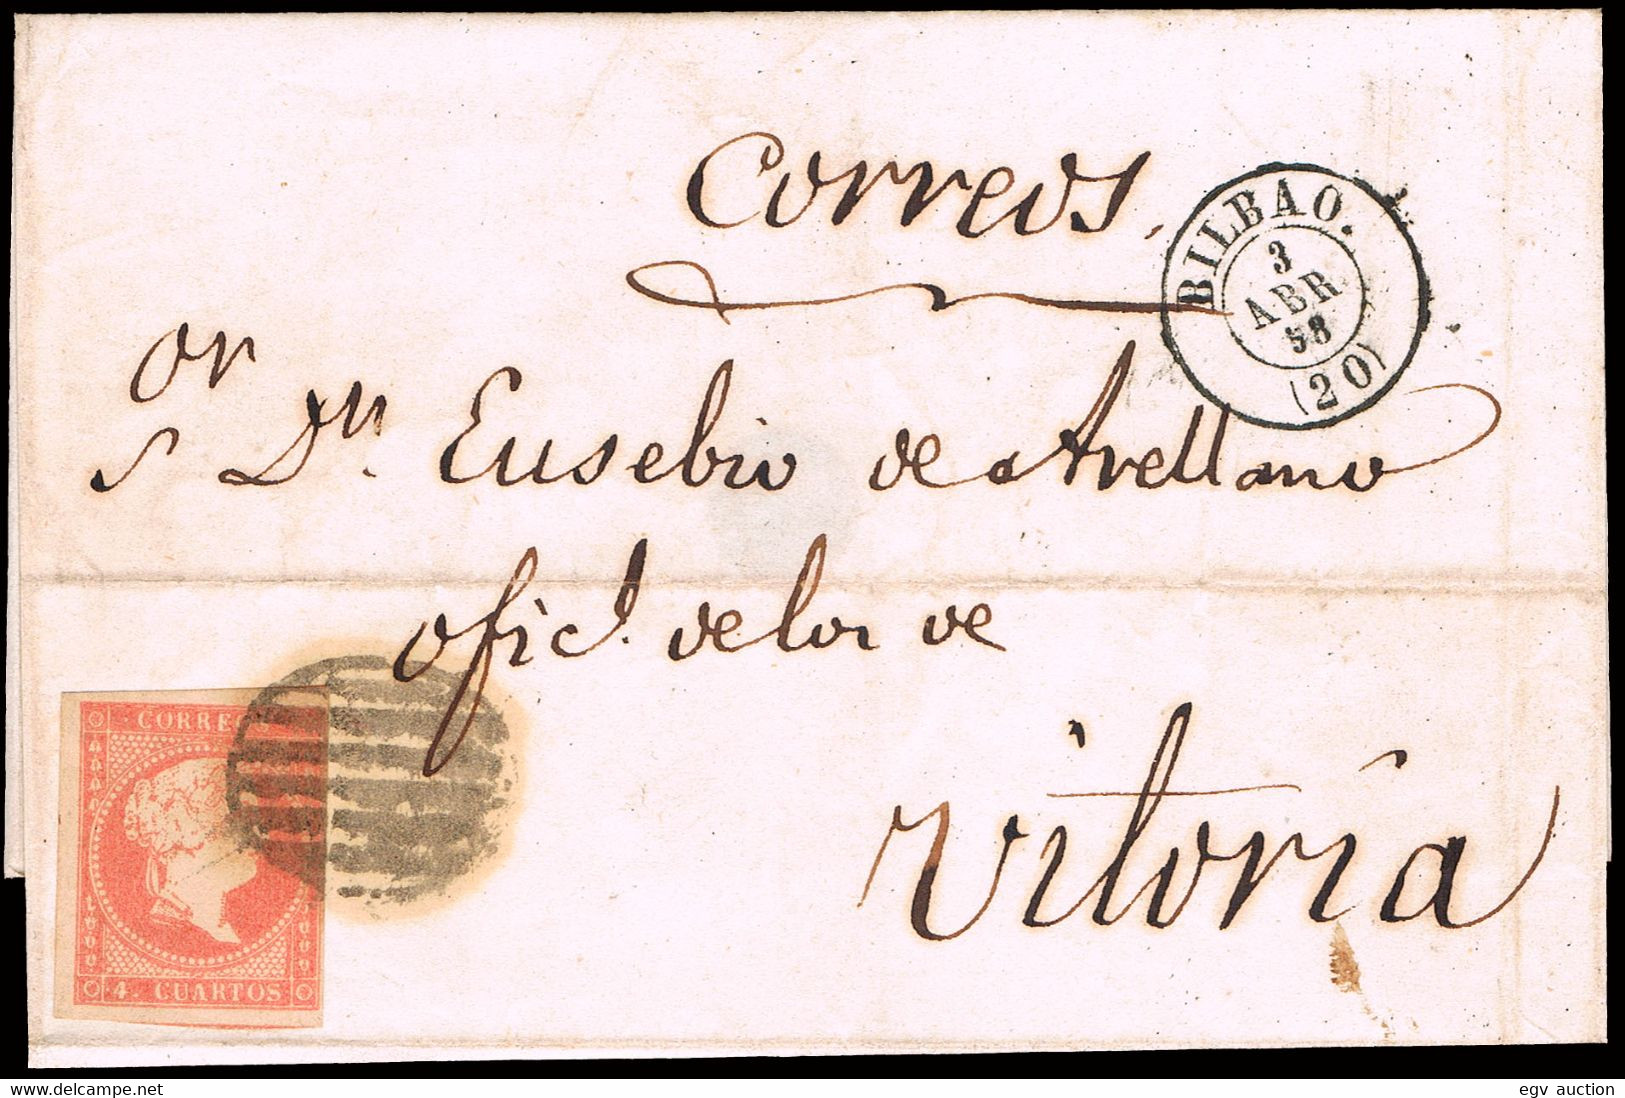 Correos,
BILBAO.
3
ABR
58
(20)
or
s Dn. Eusebio de Arellano
oficl. de los de
Vitoria
CORREOS
4. CUARTOS
delcampe.net
egv auction